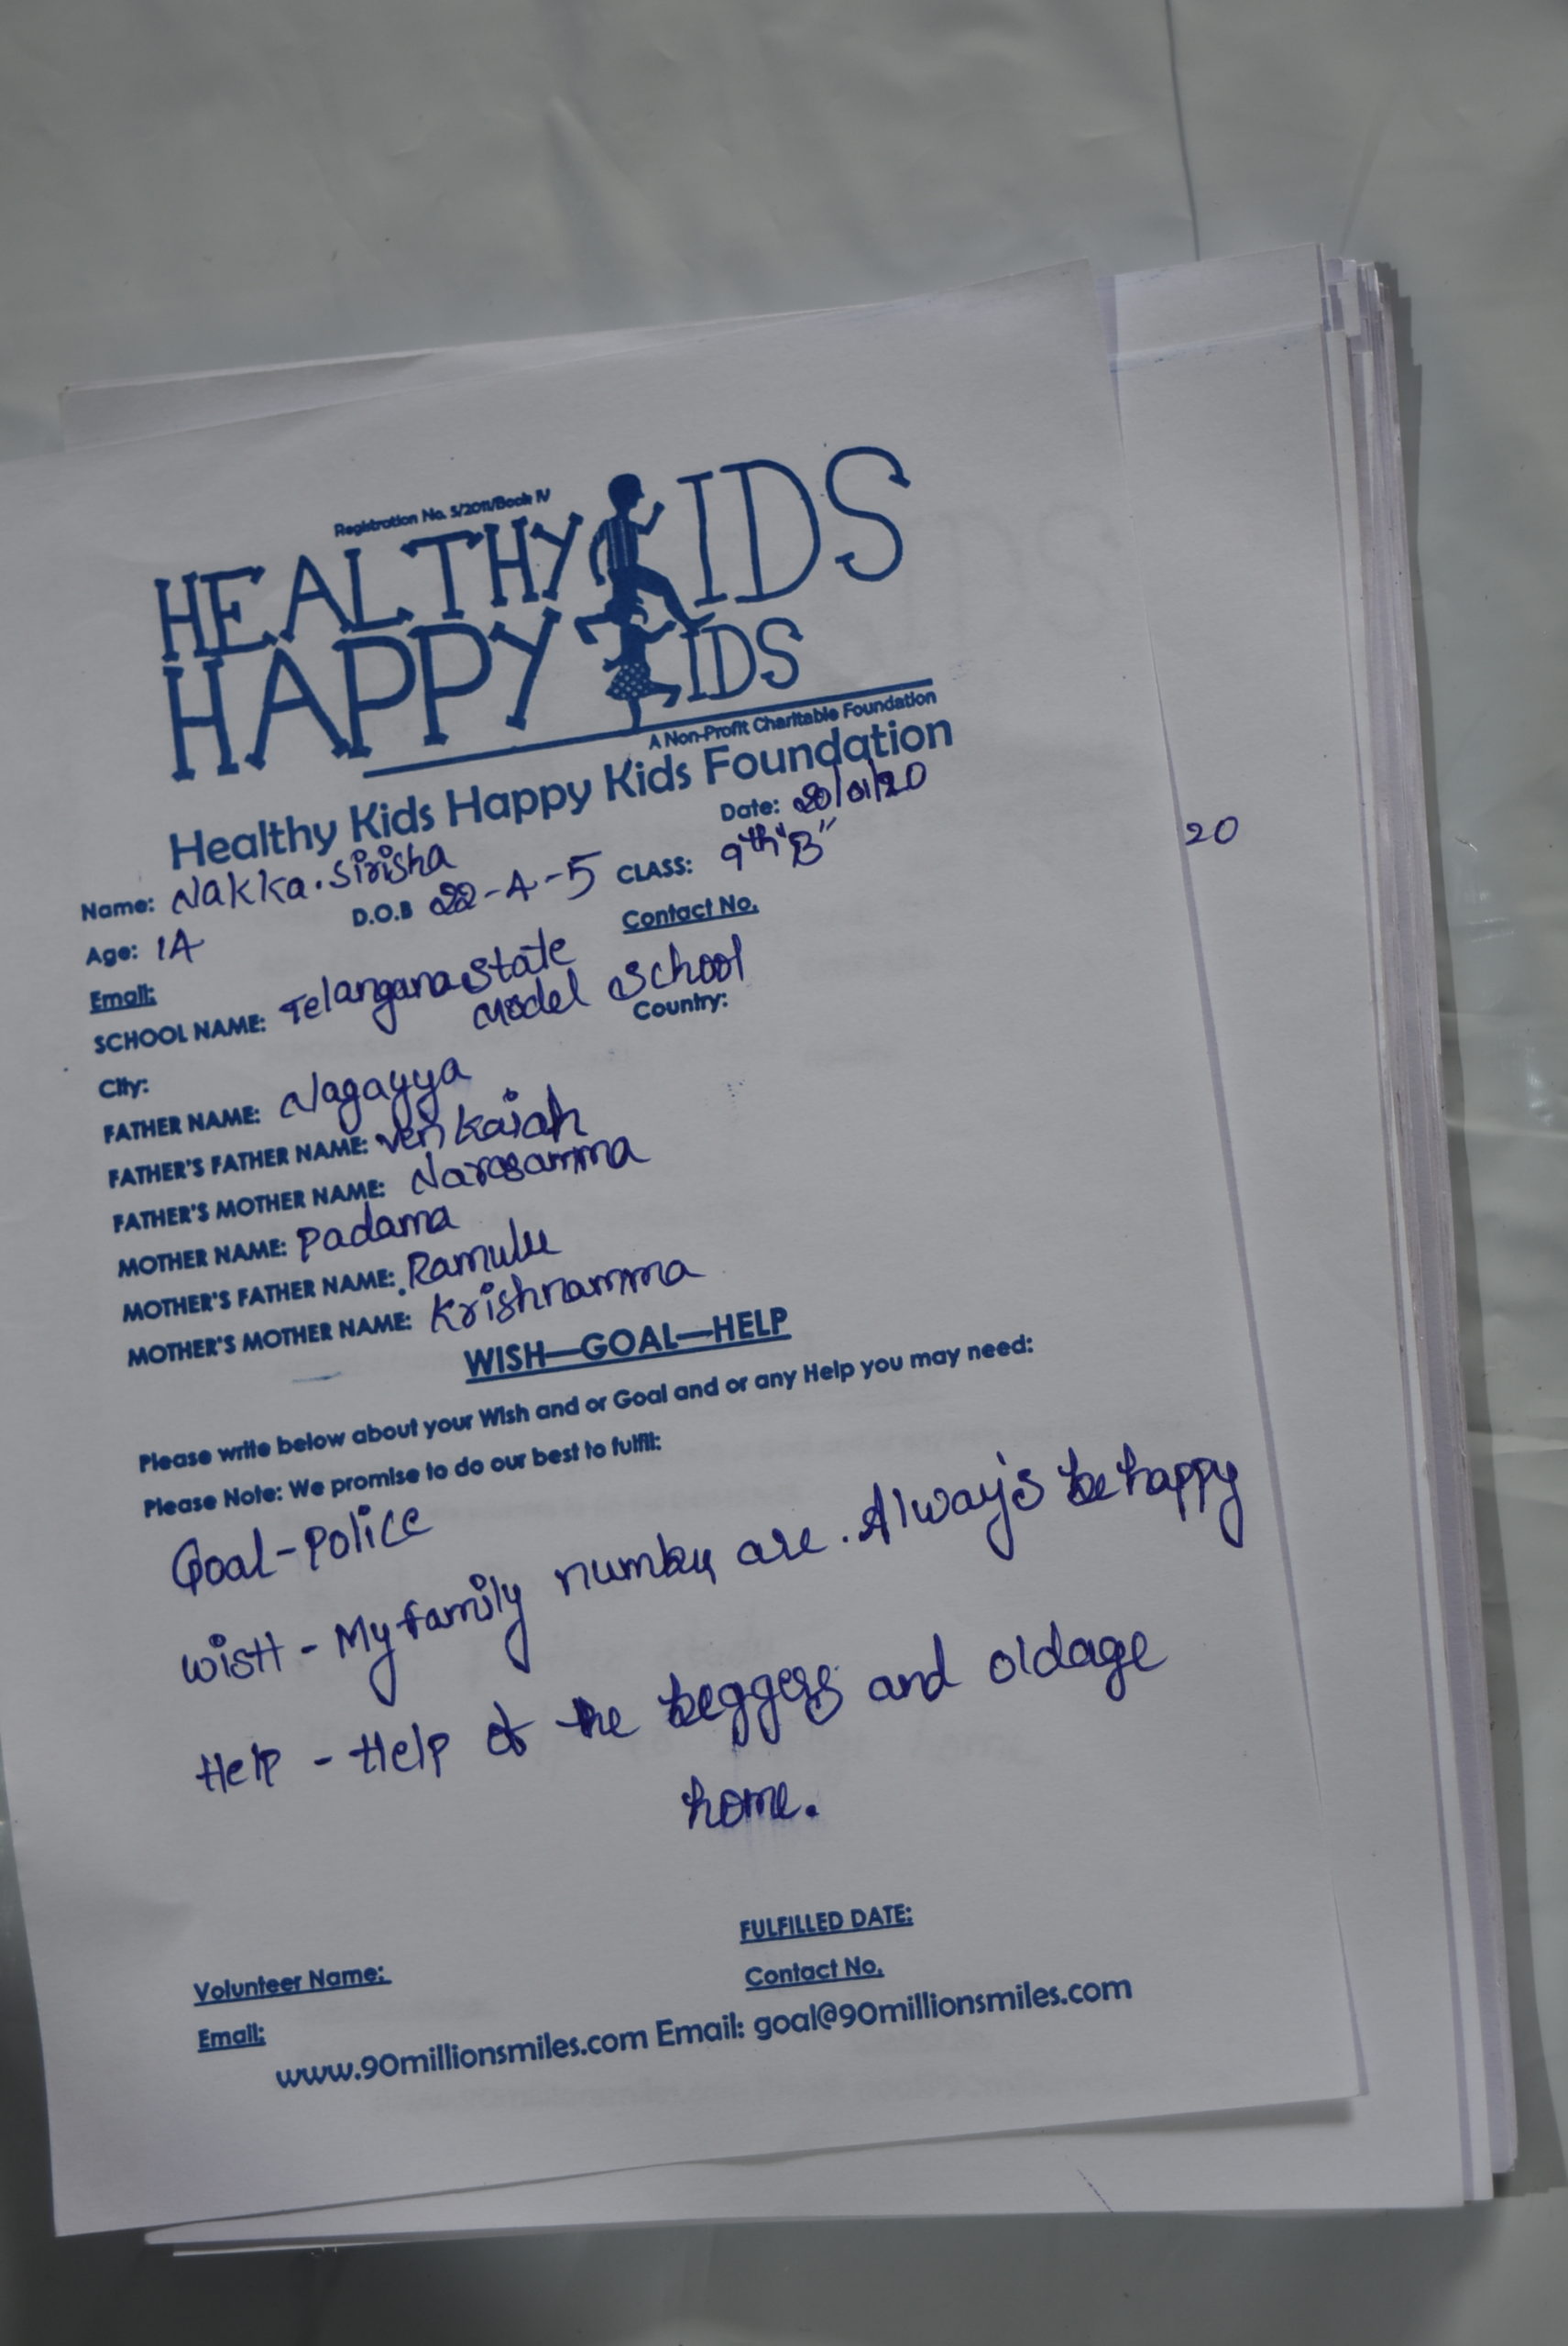 Registration No. 5/2011/Book IV
HEALTHY KIDS
HAPPY KIDS
A Non-Profit Charitable Foundation
Healthy Kids Happy Kids Foundation
Date: 20/01/20
Name: Nakka. Sirisha
D.O.B 22-4-5 CLASS: 9th "B"
Age: 14
Contact No.
Email:
SCHOOL NAME: Telangana State
Model School
City:
Country:
FATHER NAME: Nagayya
FATHER'S FATHER NAME: Venkaiah
FATHER'S MOTHER NAME: Narasamma
MOTHER NAME: Padama
MOTHER'S FATHER NAME: Ramulu
MOTHER'S MOTHER NAME: Krishnamma
WISH—GOAL—HELP
Please write below about your Wish and or Goal and or any Help you may need:
Please Note: We promise to do our best to fulfil:
Goal - Police
WisH - My family are. Always be happy
Help - Help of the beggers and oldage
home.
FULFILLED DATE:
Volunteer Name:
Contact No.
Email:
www.90millionsmiles.com Email: goal@90millionsmiles.com
20